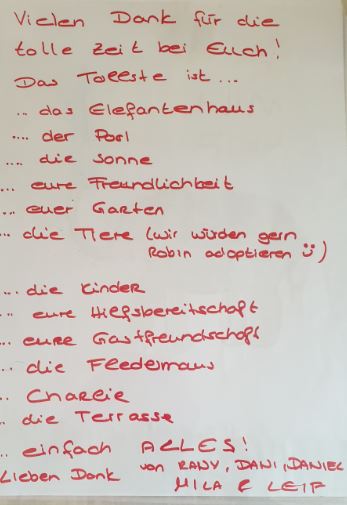 Vielen Dank für die
tolle Zeit bei Euch!
Das Tollste ist...
.. das Elefantenhaus
.... der Pool
.... die Sonne
... eure Freundlichkeit
... euer Garten
... die Tiere (wir würden gern
Robin adoptieren ü)
... die Kinder
.. eure Hilfsbereitschaft
... eure Gastfreundschaft
.. die Fledermaus
.. Charlie
.. die Terrasse
.. einfach ALLES!
Lieben Dank von RANY, DANI, DANIEL
MILA & LEIF